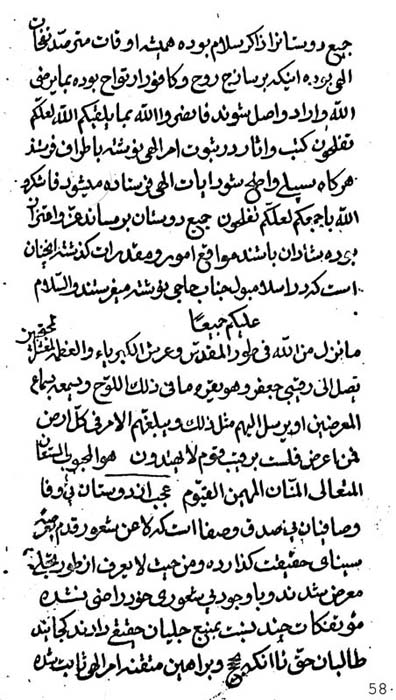 جمیع دوستانرا ذاکر سلام بوده همیشه اوقات مترصد نفحات
الهی بوده اینکه بر سانح روح و کافور ارتواح بوده بما یرضی
الله واراد واصل شوند فانصروا الله بما یلقیکم الله لعلکم
تفلحون کتب و اثار در ثبوت امر الهی نوشته باطراف فرستند
هرگاه سبیلی واضح شود ایات الهی فرستاده میشود فاشکروا
الله باجمعکم لعلکم تفلحون جمیع دوستان برسانند عز و اعتزاز
بوده شادان باشند مواقع امور و مقدرات گذشته
است که در اسلامبول جناب حاجی نوشته میفرستند والسلام
علیکم جمیعا
ما نزل من الله فی طور المقدس و عرش الکبریاء والعظمه
یصل الی رقبی جعفر و هو یقرء ما فی ذلک اللوح و یسمعه بسماع
المعرضین او یرسل الیهم مثل ذلک و یبلغهم الامر فی کل ارض
فمن اعرض فلست برقیب قوم لا یهتدون هو المحبوب المستعان
المتعالی المنان المهیمن القیوم عجب از دوستان بی وفا
وصافیان بی صدق و صفا است که لا عن شعور قدم
سینای حقیقت گذارده و من حیث لا یعرف از طور تجلی
معرض شدند و با وجود بی شعوری خود راضی نشده
مؤتفکات چند نسبت بمنبع جلیان حقیقی دادند کجایند
طالبان حق تا انکه و براهین متقنه امر الهی ثابت شده
58